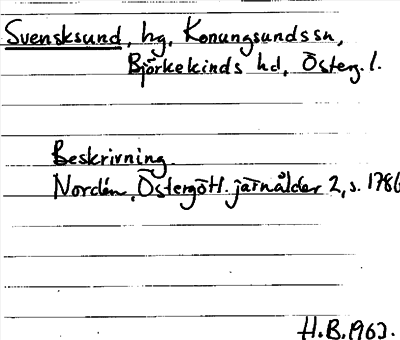 Svensksund, hg, Konungsundssn,
Björkekinds hd, Österg. l.
Beskrivning.
Nordén, Östergötl. järnålder 2, s. 178
H.B. 1962.